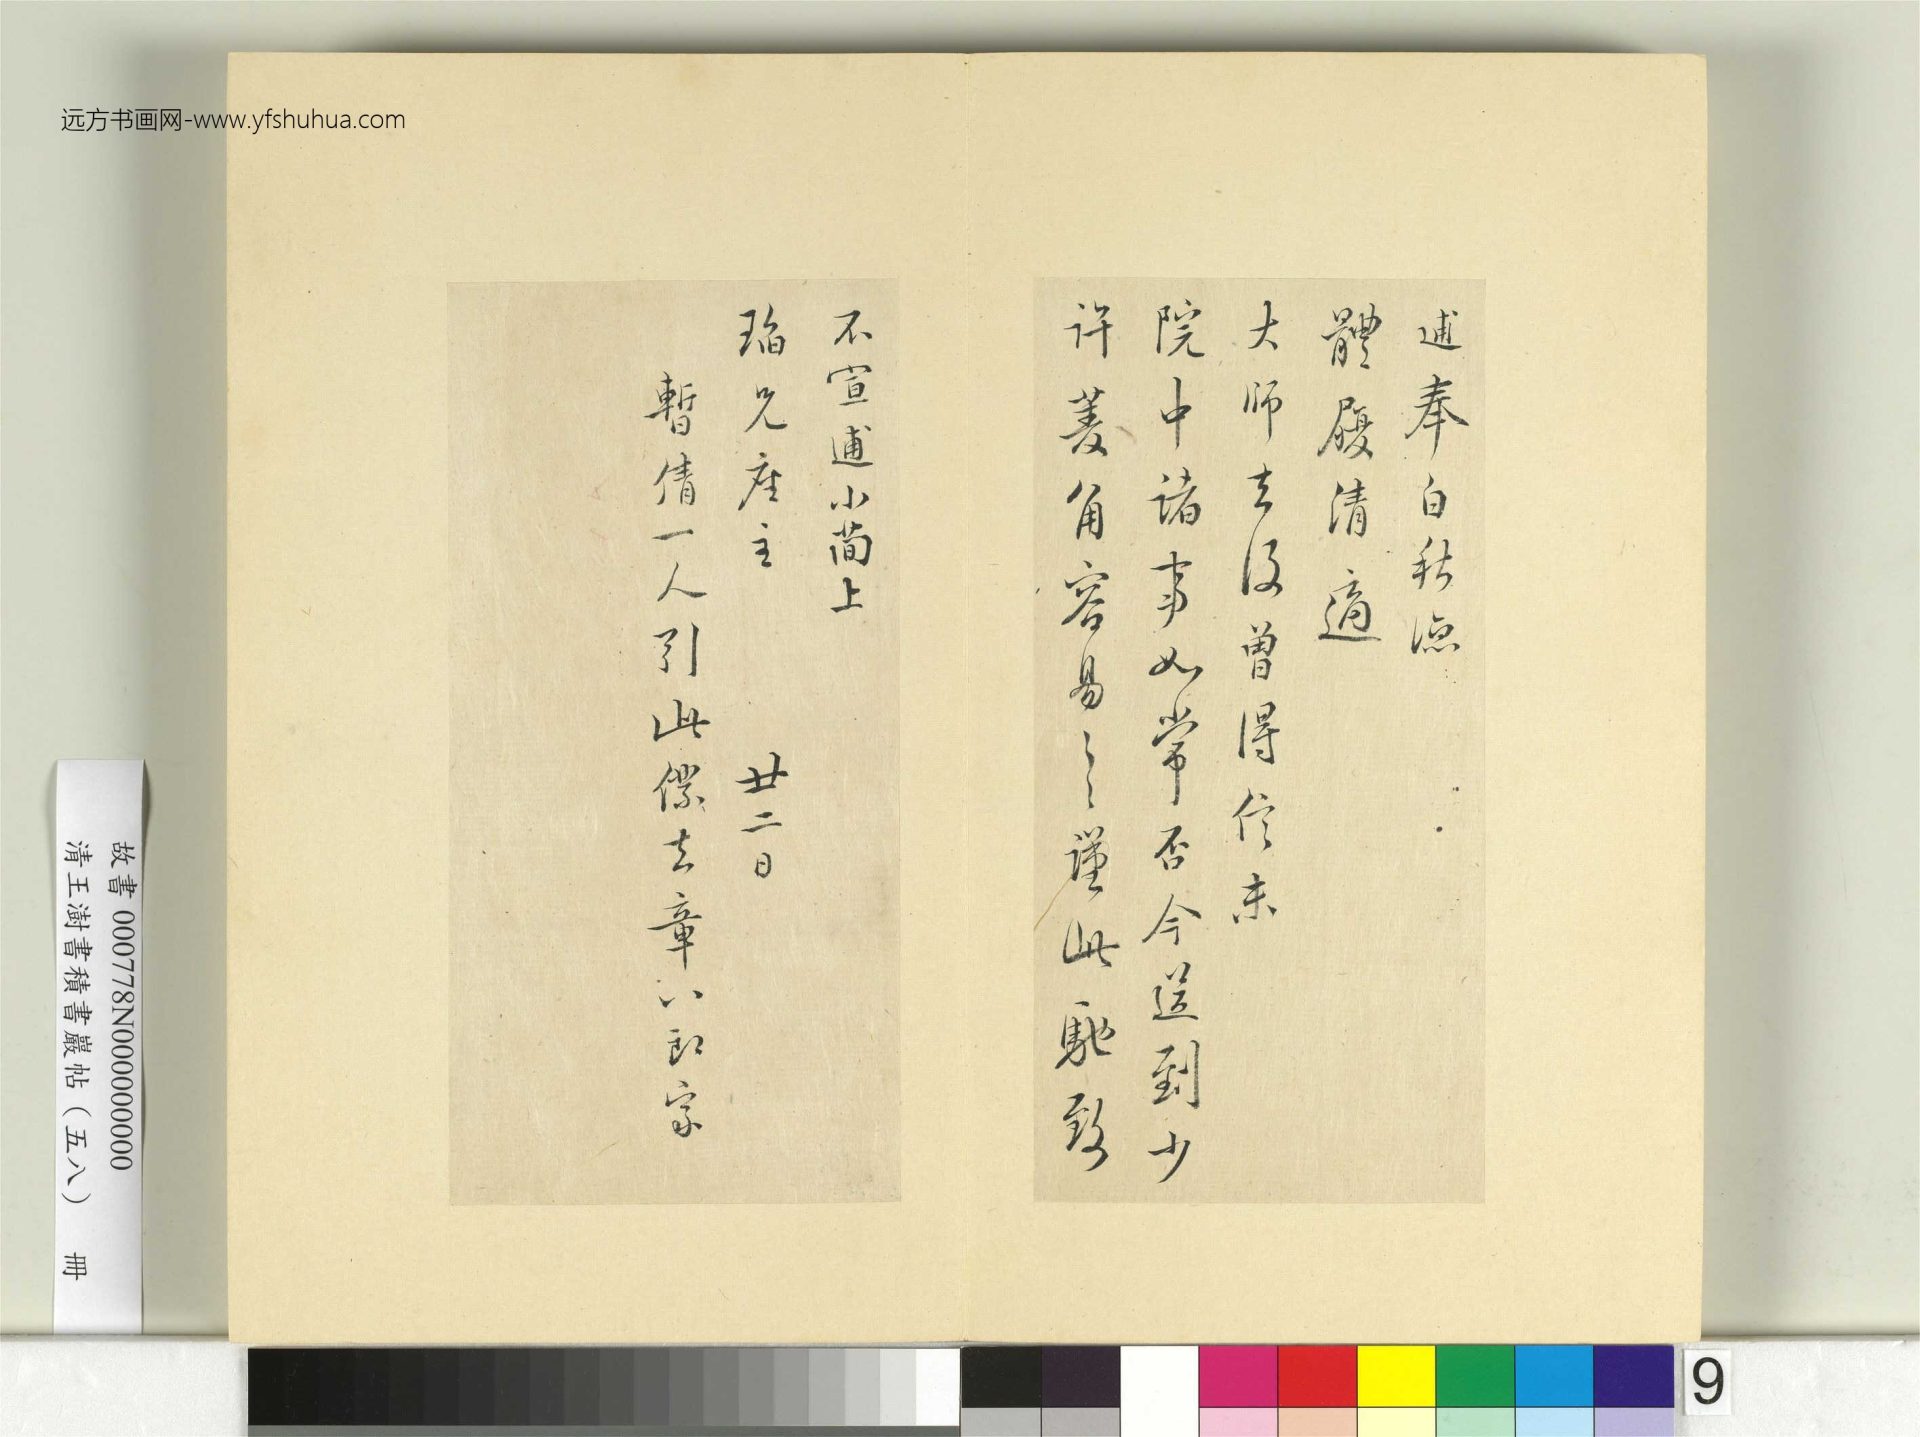 逋奉白秋涼
體履清適
大師去後曾得信未
院中諸事如常否今送到少
許菱角容易〻〻謹此馳致
不宣逋小簡上
瑫兄座主 廿二日
暫倩一人引此僕去章八郎家
远方书画网-www.yfshuhua.com
故書 000778N000000000
清王澍書積書巖帖（五八） 冊
9